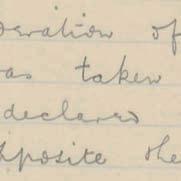 eration of
as taken
declared
pposite the